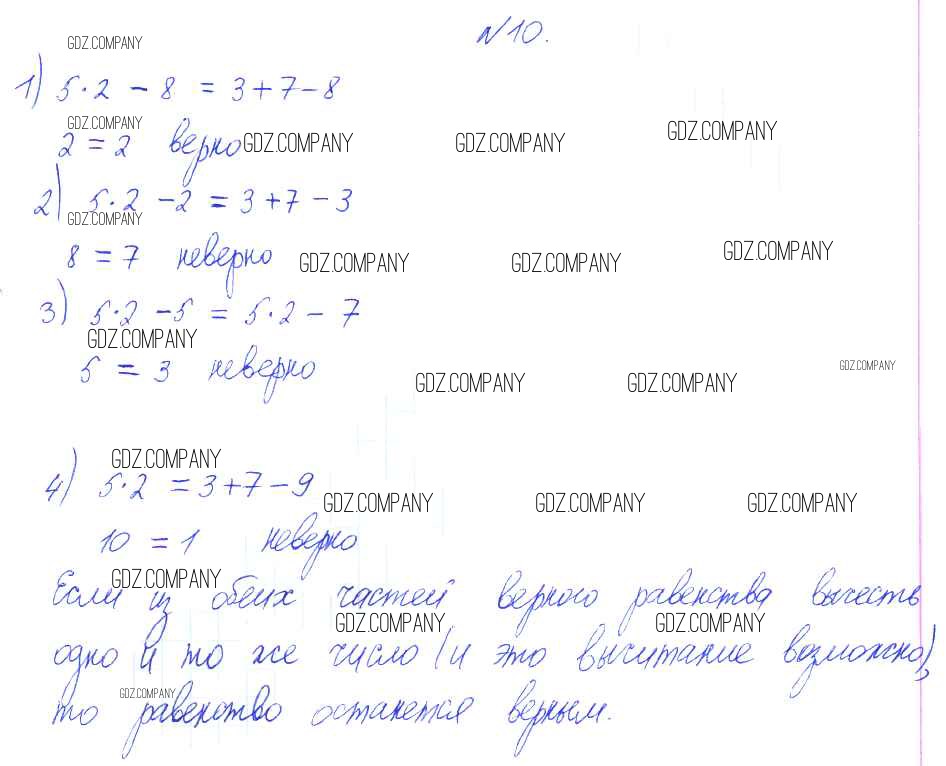 №10.
GDZ.COMPANY
1) 5·2 - 8 = 3+7-8
GDZ.COMPANY
2 = 2 верно GDZ.COMPANY GDZ.COMPANY GDZ.COMPANY
2) 5·2 -2 = 3+7-3
GDZ.COMPANY
8 = 7 неверно GDZ.COMPANY GDZ.COMPANY GDZ.COMPANY
3) 5·2 -5 = 5·2 - 7
GDZ.COMPANY
5 = 3 неверно
GDZ.COMPANY GDZ.COMPANY GDZ.COMPANY
GDZ.COMPANY
4) 5·2 = 3+7-9
GDZ.COMPANY GDZ.COMPANY GDZ.COMPANY
10 = 1 неверно
GDZ.COMPANY
Если из обеих частей верного равенства вычесть
GDZ.COMPANY GDZ.COMPANY
одно и то же число (и это вычитание возможно),
GDZ.COMPANY
то равенство останется верным.